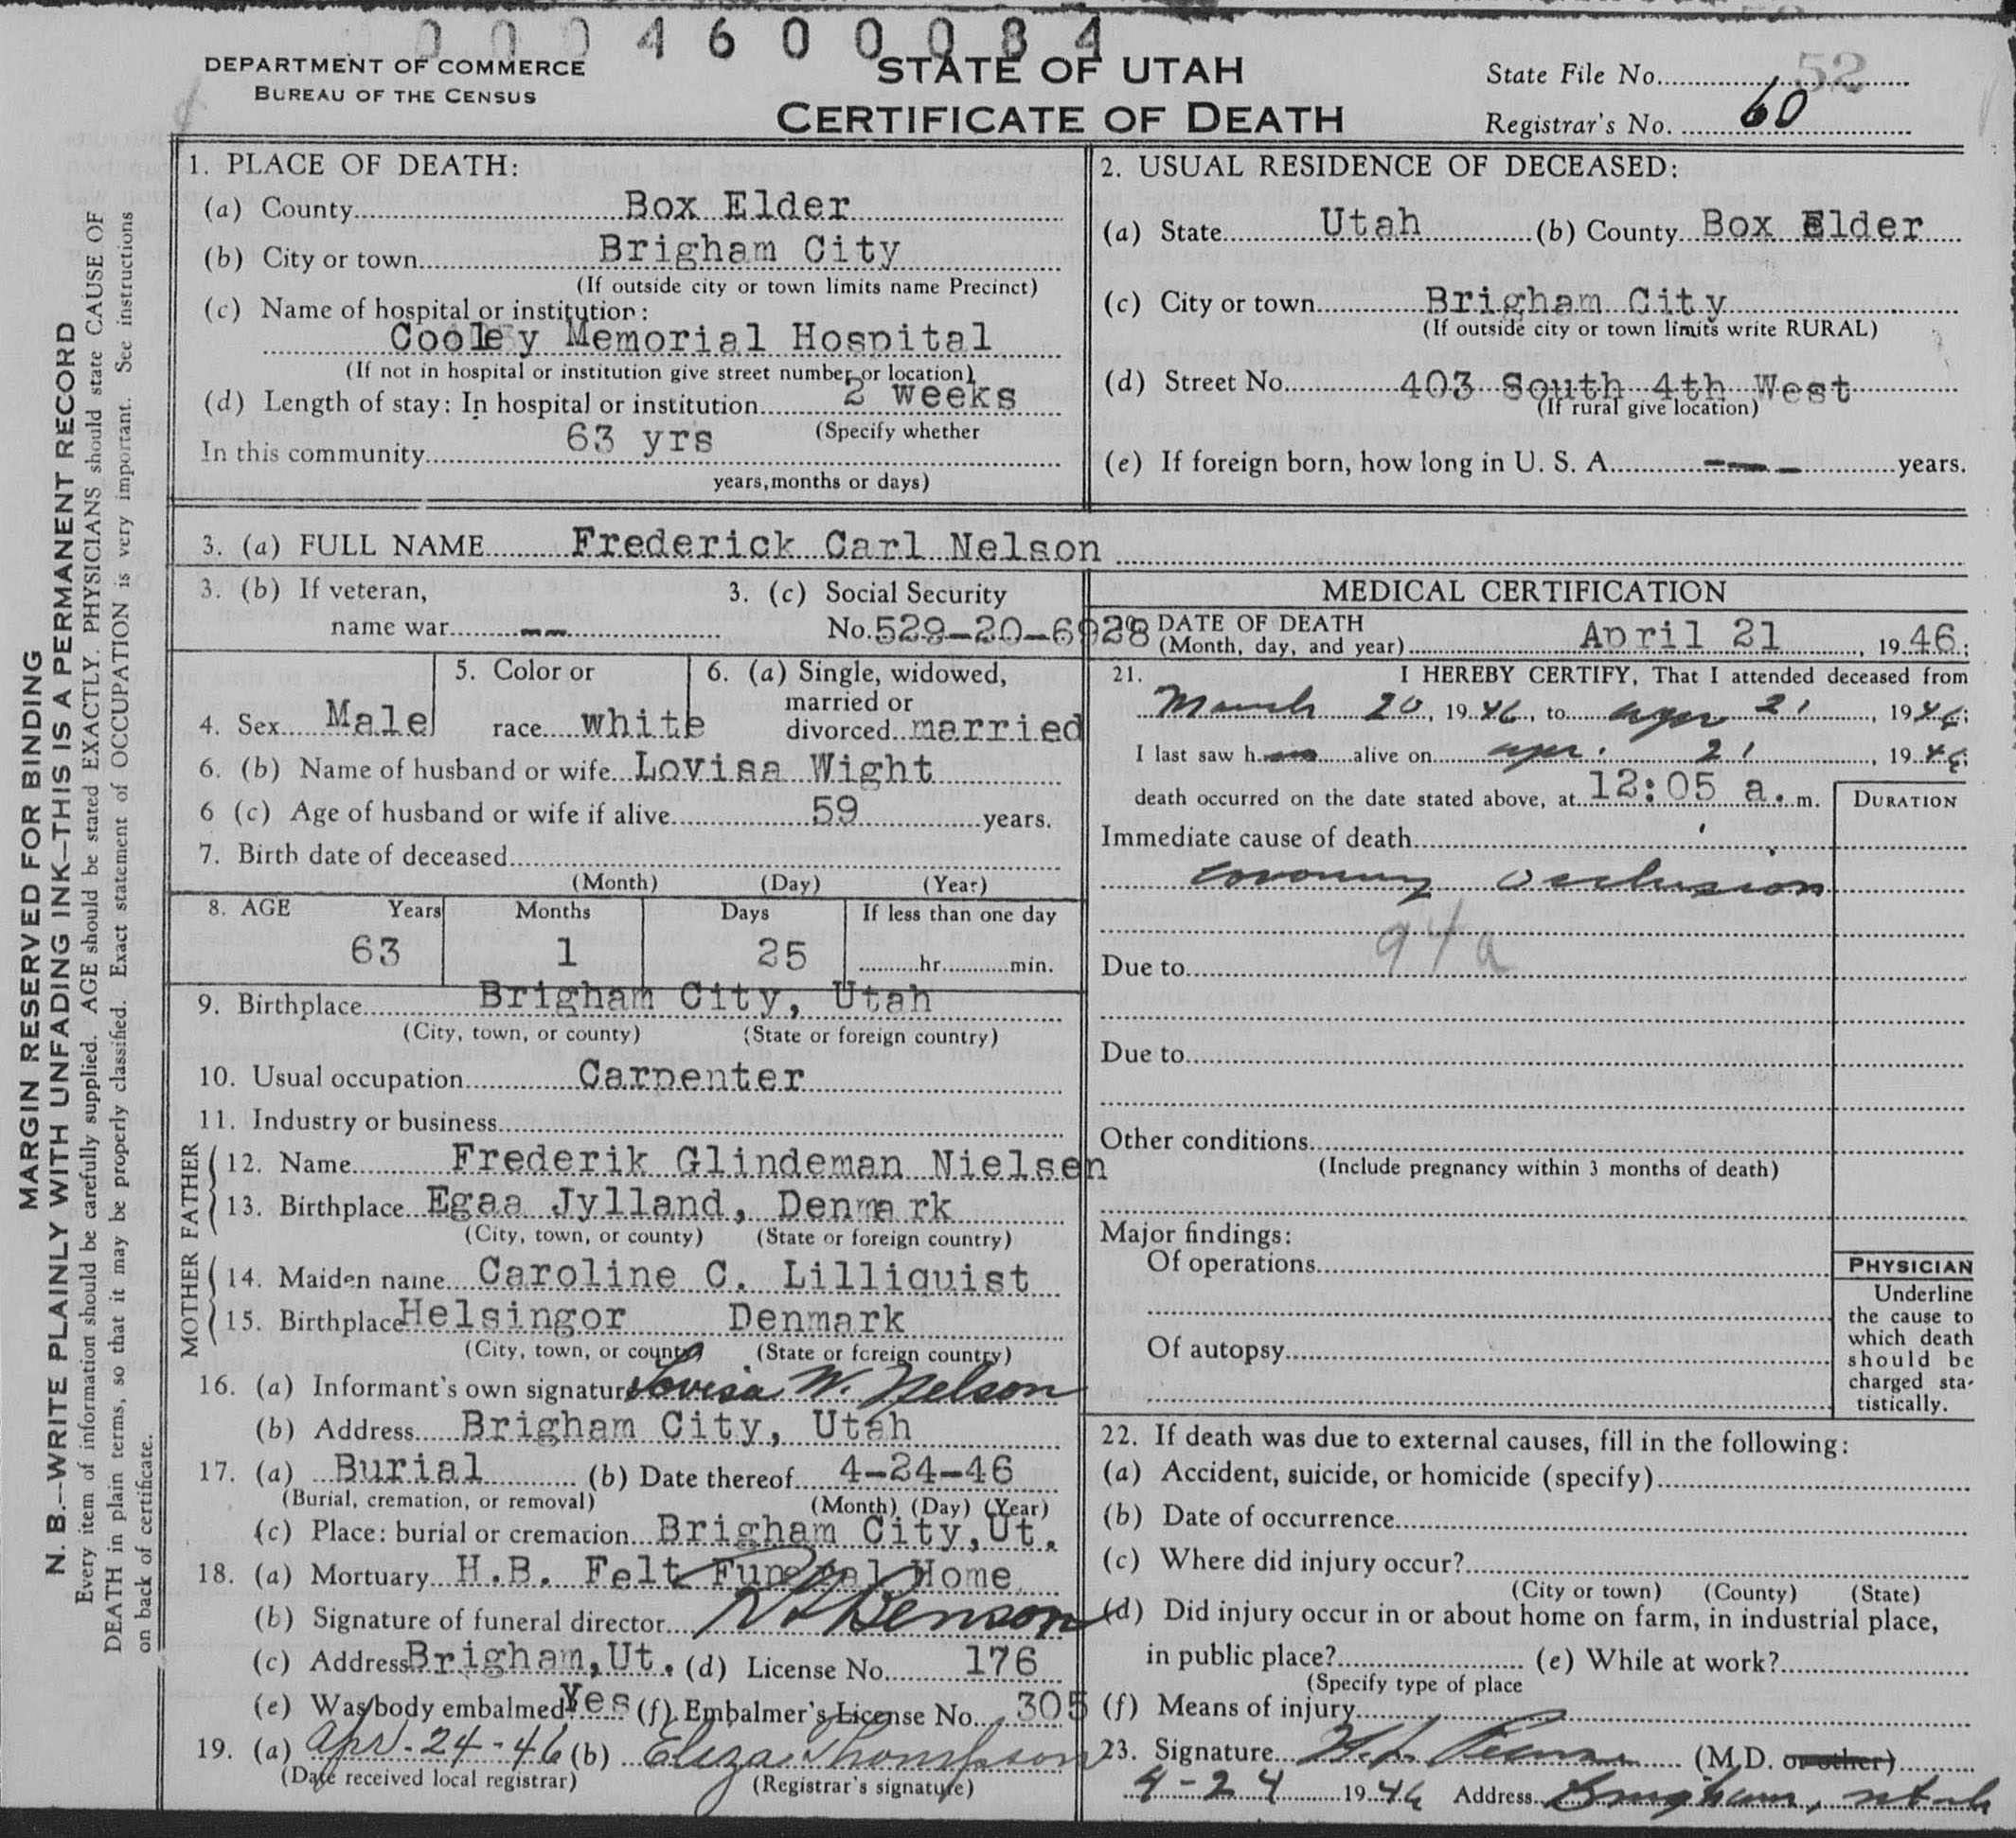 0004600084
DEPARTMENT OF COMMERCE
BUREAU OF THE CENSUS
STATE OF UTAH
CERTIFICATE OF DEATH
State File No. 52
Registrar's No. 60
MARGIN RESERVED FOR BINDING
N. B.—WRITE PLAINLY WITH UNFADING INK—THIS IS A PERMANENT RECORD
Every item of information should be carefully supplied. AGE should be stated EXACTLY. PHYSICIANS should state CAUSE OF
DEATH in plain terms, so that it may be properly classified. Exact statement of OCCUPATION is very important. See instructions
on back of certificate.
1. PLACE OF DEATH:
(a) County Box Elder
(b) City or town Brigham City
(If outside city or town limits name Precinct)
(c) Name of hospital or institution:
Cooley Memorial Hospital
(If not in hospital or institution give street number or location)
(d) Length of stay: In hospital or institution 2 weeks
(Specify whether
In this community 63 yrs
years, months or days)
2. USUAL RESIDENCE OF DECEASED:
(a) State Utah (b) County Box Elder
(c) City or town Brigham City
(If outside city or town limits write RURAL)
(d) Street No. 403 South 4th West
(If rural give location)
(e) If foreign born, how long in U. S. A. --- years.
3. (a) FULL NAME Frederick Carl Nelson
3. (b) If veteran,
name war --
3. (c) Social Security
No. 529-20-6928
4. Sex Male
5. Color or
race white
6. (a) Single, widowed,
married or
divorced married
6. (b) Name of husband or wife Lovisa Wight
6 (c) Age of husband or wife if alive 59 years.
7. Birth date of deceased
(Month) (Day) (Year)
8. AGE Years Months Days If less than one day
63 1 25 hr. min.
9. Birthplace Brigham City, Utah
(City, town, or county) (State or foreign country)
10. Usual occupation Carpenter
11. Industry or business
FATHER
12. Name Frederik Glindeman Nielsen
13. Birthplace Egaa Jylland, Denmark
(City, town, or county) (State or foreign country)
MOTHER
14. Maiden name Caroline C. Lilliquist
15. Birthplace Helsingor Denmark
(City, town, or county) (State or foreign country)
16. (a) Informant's own signature Lovisa W. Nelson
(b) Address Brigham City, Utah
17. (a) Burial (b) Date thereof 4-24-46
(Burial, cremation, or removal) (Month) (Day) (Year)
(c) Place: burial or cremation Brigham City, Ut.
18. (a) Mortuary H.B. Felt Funeral Home
(b) Signature of funeral director Benson
(c) Address Brigham, Ut. (d) License No. 176
(e) Was body embalmed? Yes (f) Embalmer's License No. 305
19. (a) Apr-24-46 (b) Eliza Thompson
(Date received local registrar) (Registrar's signature)
MEDICAL CERTIFICATION
DATE OF DEATH
(Month, day, and year) April 21, 1946;
21. I HEREBY CERTIFY, That I attended deceased from
March 20, 1946, to apr 21, 1946;
I last saw h alive on apr. 21, 1946;
death occurred on the date stated above, at 12:05 a. m.
DURATION
Immediate cause of death
Coronary Occlusion
94a
Due to
Due to
Other conditions
(Include pregnancy within 3 months of death)
Major findings:
Of operations
Of autopsy
PHYSICIAN
Underline
the cause to
which death
should be
charged sta-
tistically.
22. If death was due to external causes, fill in the following:
(a) Accident, suicide, or homicide (specify)
(b) Date of occurrence
(c) Where did injury occur?
(City or town) (County) (State)
(d) Did injury occur in or about home on farm, in industrial place,
in public place? (e) While at work?
(Specify type of place
(f) Means of injury
23. Signature (M.D. or other)
4-24 1946 Address Brigham, Utah